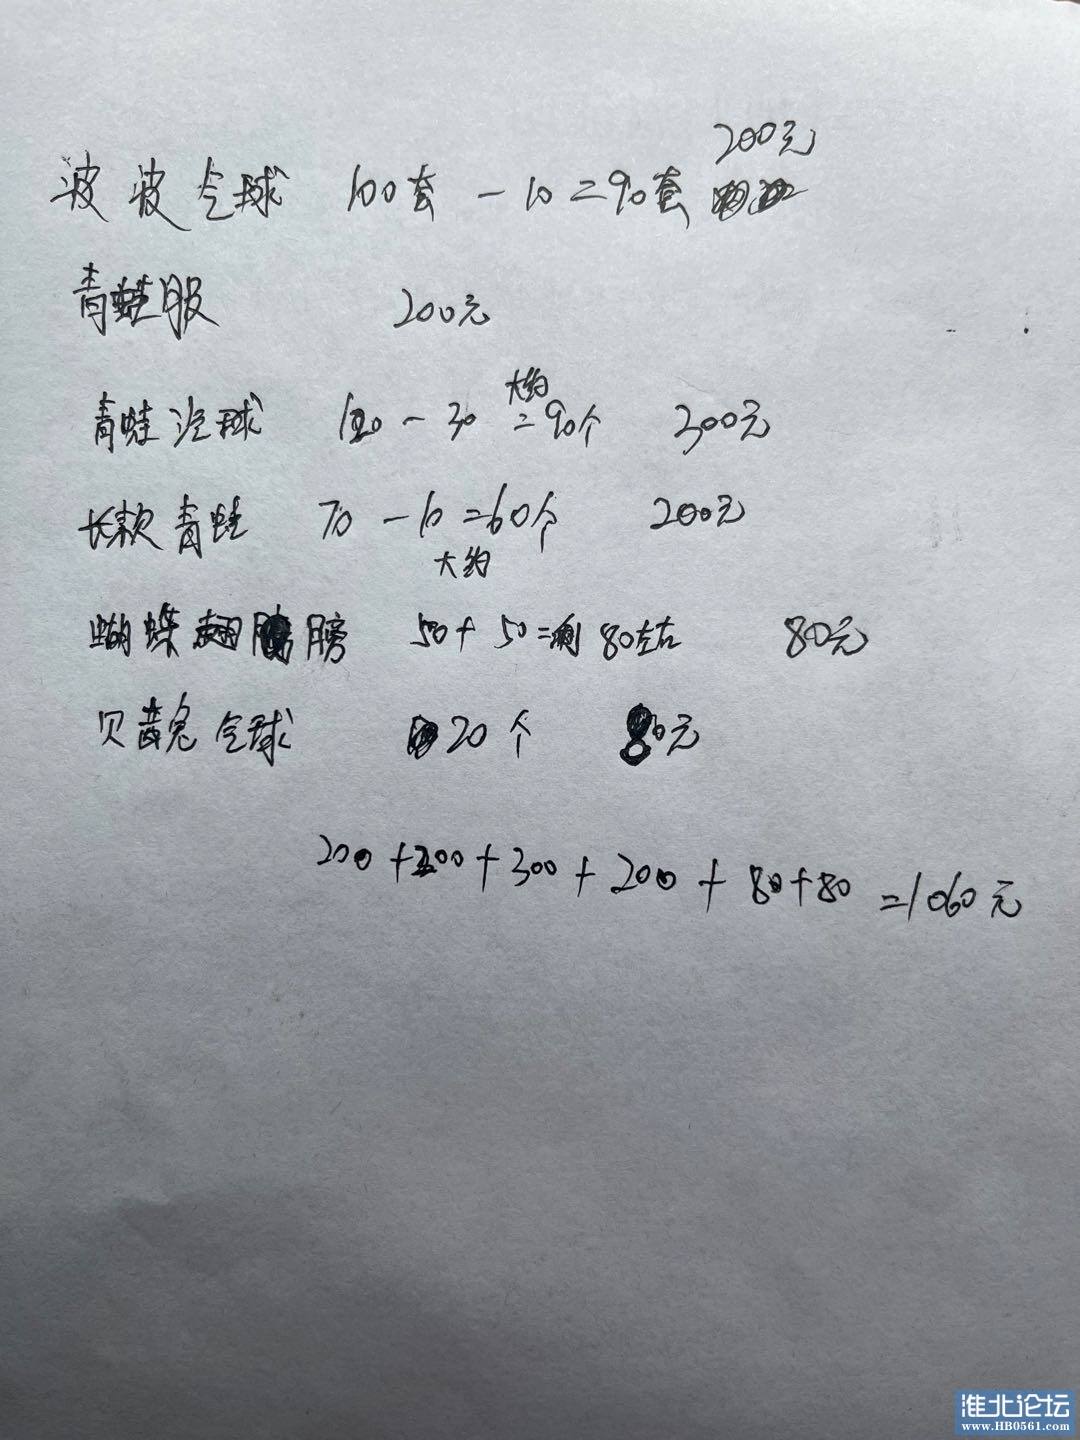 200元
波波气球 100套 - 10 = 90套
青蛙服 200元
大约
青蛙汽球 120 - 30 = 90个 300元
长款青蛙 70 - 10 = 60个 200元
大约
蝴蝶翅膀 50 + 50 = 剩80左右 80元
贝壳兔气球 20个 80元
200 + 200 + 300 + 200 + 80 + 80 = 1060元
淮北论坛
www.HB0561.com